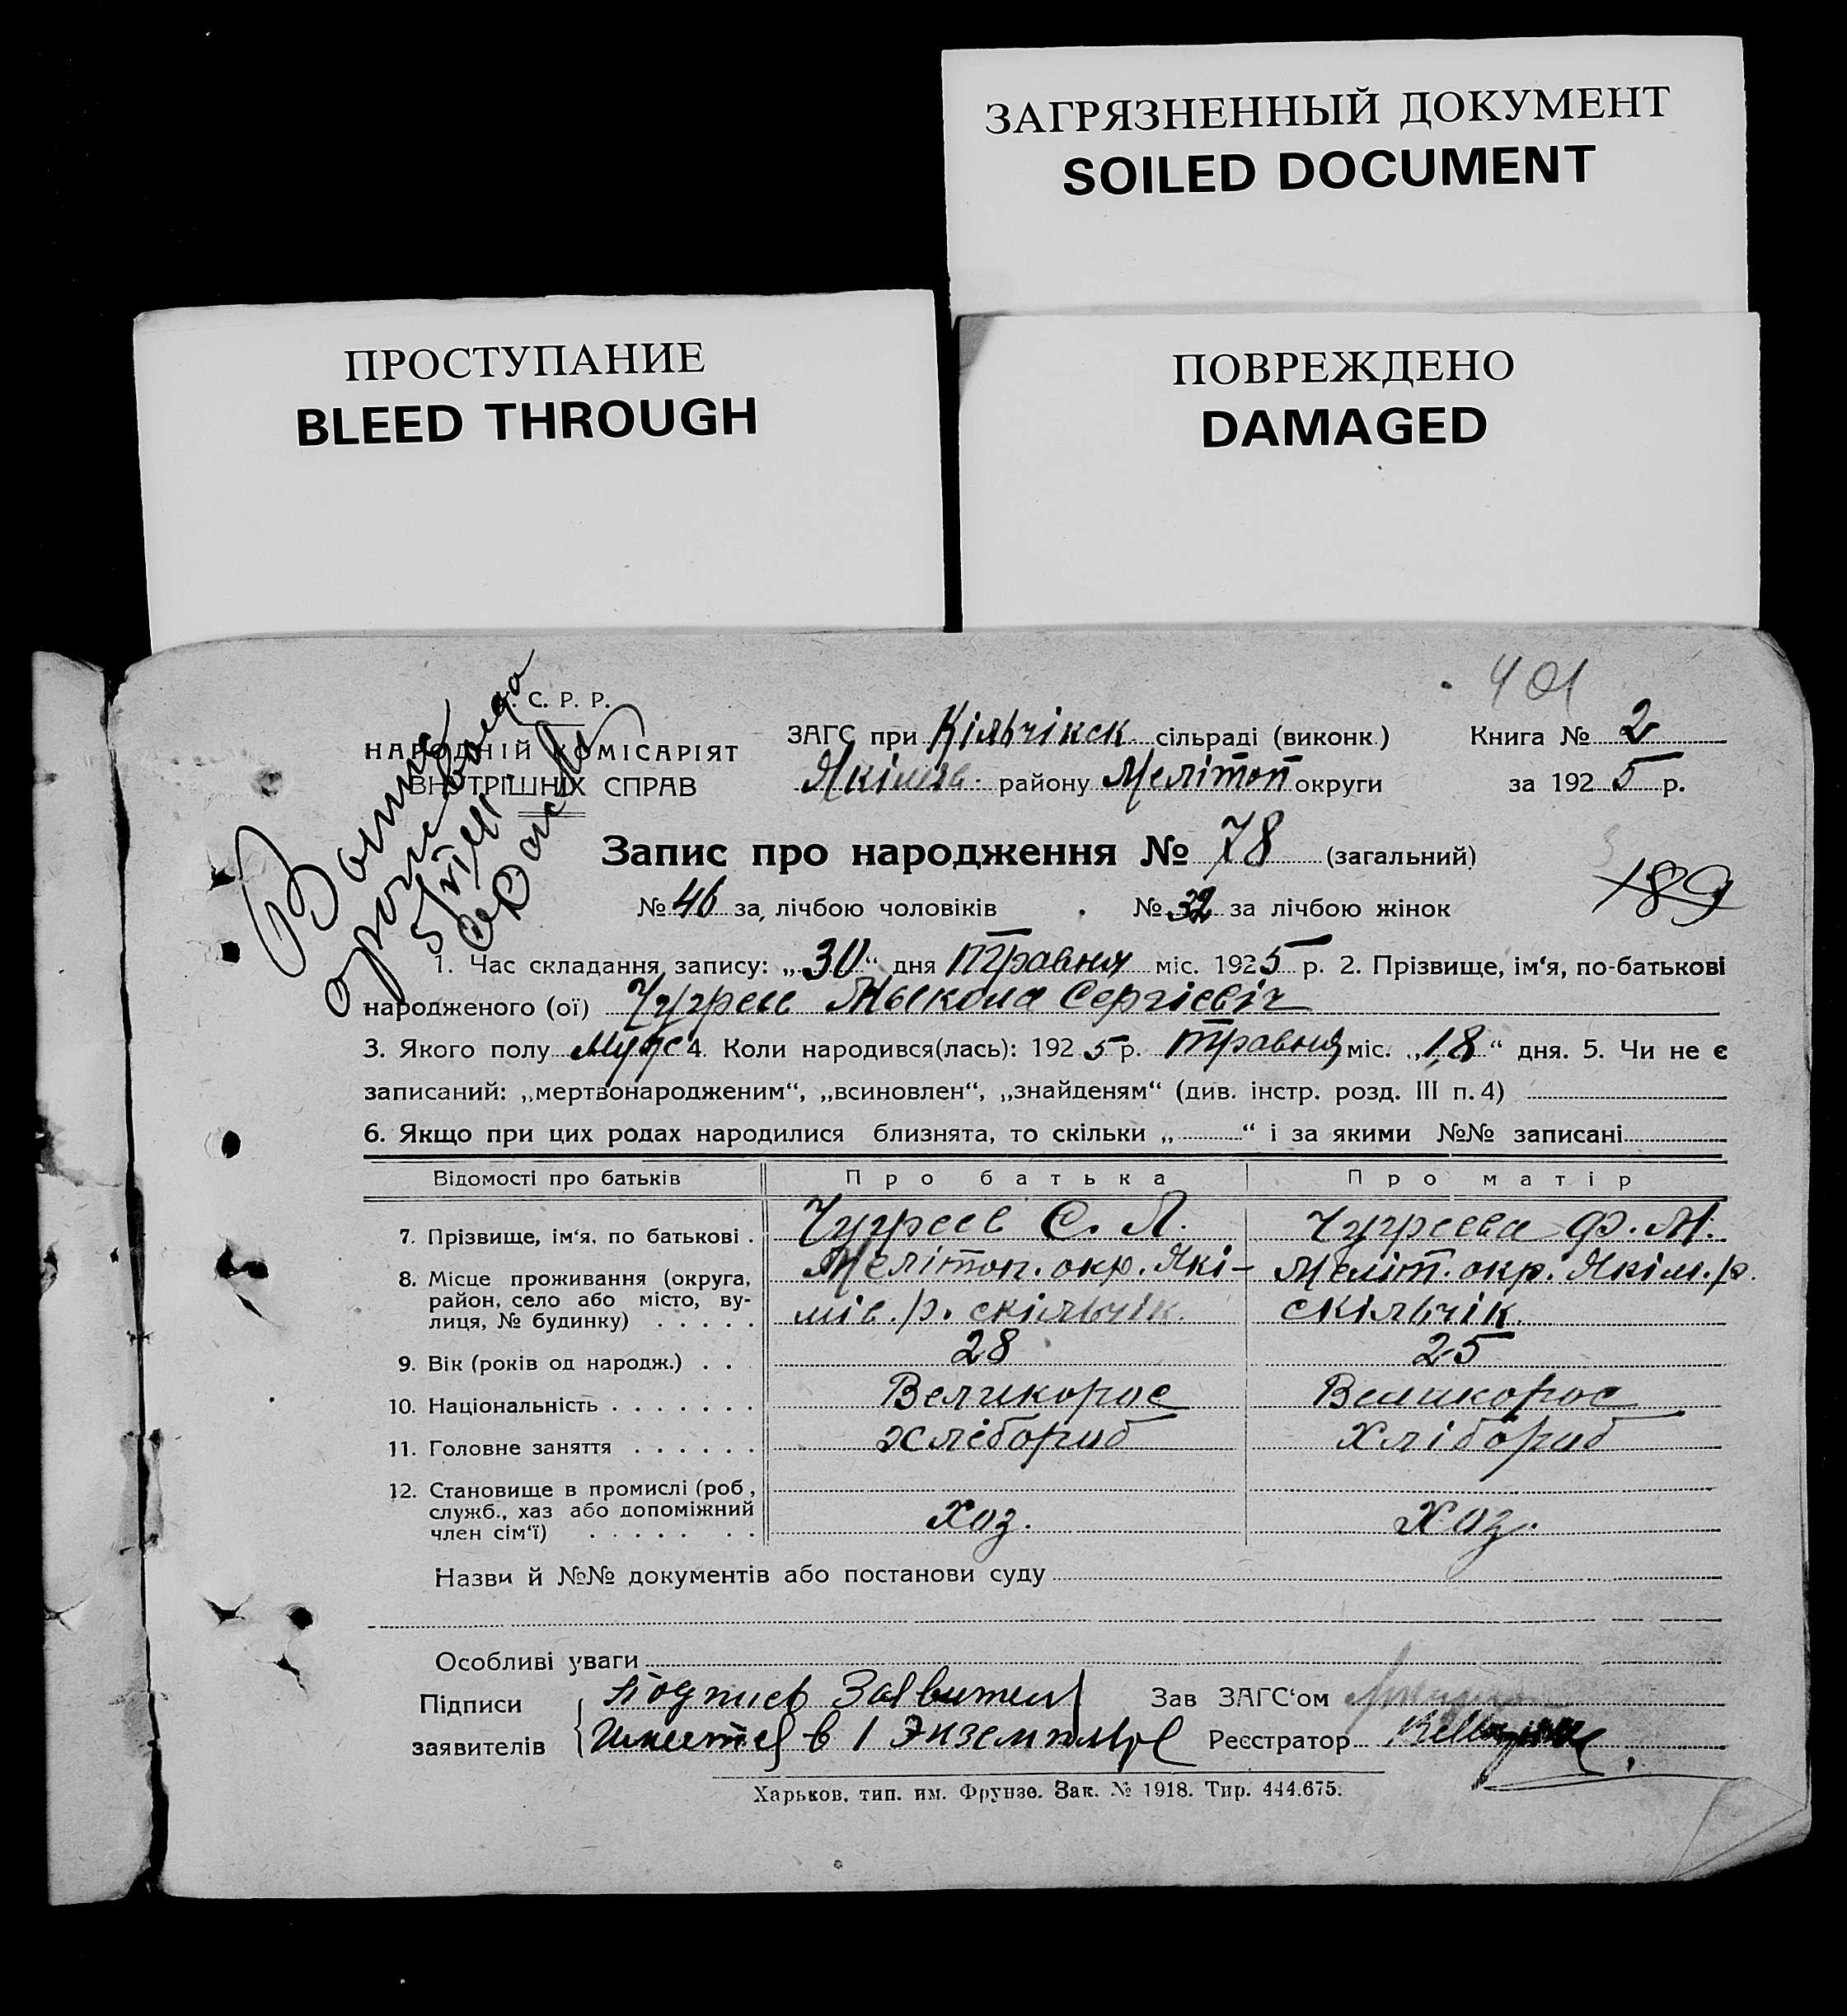 ЗАГРЯЗНЕННЫЙ ДОКУМЕНТ
SOILED DOCUMENT
ПРОСТУПАНИЕ
BLEED THROUGH
ПОВРЕЖДЕНО
DAMAGED
401
С. Р. Р.
НАРОДНІЙ КОМІСАРІЯТ
ВНУТРІШНІХ СПРАВ
ЗАГС при Кільчікск сільраді (виконк.)
Книга № 2
Якімів. району Мелітоп округи
за 1925 р.
Запис про народження № 78 (загальний)
189
№ 46 за лічбою чоловіків
№ 32 за лічбою жінок
1. Час складання запису: „30“ дня травня міс. 1925 р. 2. Прізвище, ім‘я, по-батькові
народженого (ої) Чугреев Мыкола Сергієвіч
3. Якого полу Муж 4. Коли народився(лась): 1925 р. травня міс. „18“ дня. 5. Чи не є
записаний: „мертвонародженим“, „всиновлен“, „знайденям“ (див. інстр. розд. III п. 4)
6. Якщо при цих родах народилися близнята, то скільки „ “ і за якими №№ записані
Відомості про батьків
Про батька
Про матір
7. Прізвище, ім‘я, по батькові .
Чугреєв С. Л.
Чугреева Ф. М.
8. Місце проживання (округа, район, село або місто, ву-
лиця, № будинку) . . . . .
Мелітоп. окр. Які-
мів. р. скільчік.
Меліт. окр. Якім. р.
скільчік.
9. Вік (років од народж.) . .
28
25
10. Національність . . . . . . .
Великорос
Великорос
11. Головне заняття . . . . . .
хлебориб
Хлібориб
12. Становище в промислі (роб,
служб., хаз або допоміжний
член сім‘ї) . . . . . . .
Хоз.
Хоз.
Назви й №№ документів або постанови суду
Особливі уваги
Підписи
заявителів
Подпись Заявителя
имеется в 1 Экземпляре
Зав ЗАГС‘ом
Реєстратор
Харьков, тип. им. Фрунзе. Зак. № 1918. Тир. 444.675.